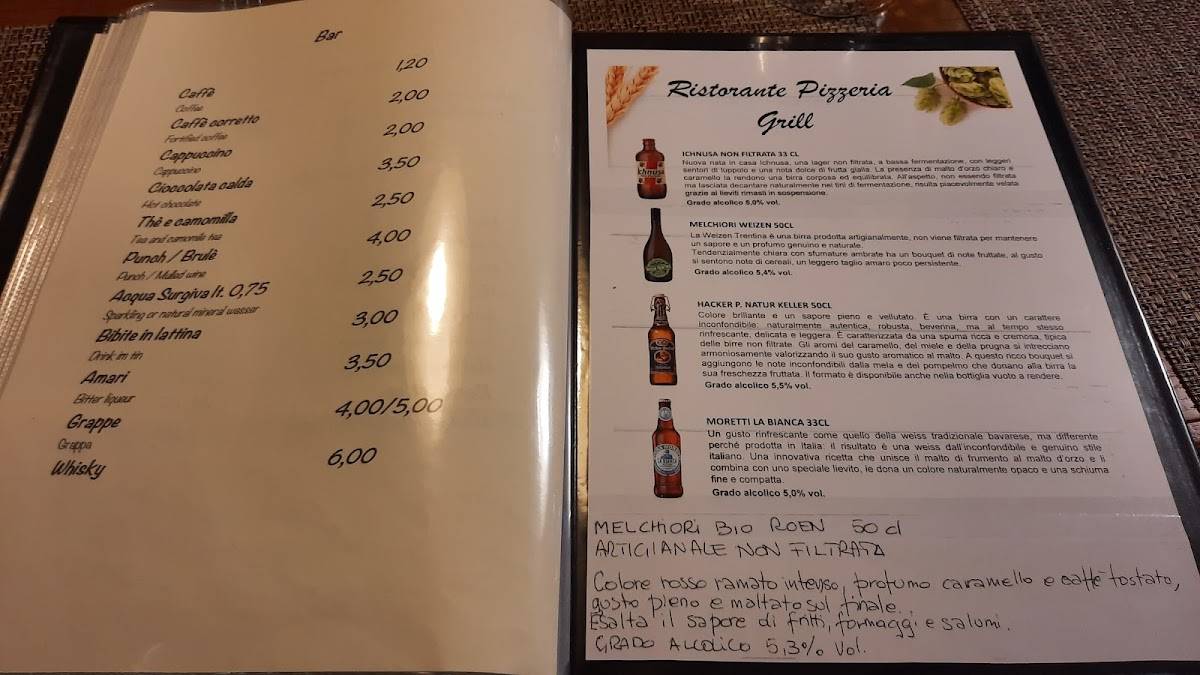 Bar
Caffè 1,20
Coffee
Caffè corretto 2,00
Fortified coffee
Cappuccino 2,00
Cappuccino
Cioccolata calda 3,50
Hot chocolate
Thè e camomilla 2,50
Tea and camomile tea
Punch / Brulè 4,00
Punch / Mulled wine
Acqua Surgiva lt. 0,75 2,50
Sparkling or natural mineral wasser
Bibite in lattina 3,00
Drink im tin
Amari 3,50
Bitter liqueur
Grappe 4,00/5,00
Grappa
Whisky 6,00
Ristorante Pizzeria
Grill
ICHNUSA NON FILTRATA 33 CL
Nuova nata in casa Ichnusa, una lager non filtrata, a bassa fermentazione, con leggeri
sentori di luppolo e una nota dolce di frutta gialla. La presenza di malto d'orzo chiaro e
caramello la rendono una birra corposa ed equilibrata. All'aspetto, non essendo filtrata
ma lasciata decantare naturalmente nei tini di fermentazione, risulta piacevolmente velata
grazie ai lieviti rimasti in sospensione.
Grado alcolico 5,0% vol.
MELCHIORI WEIZEN 50CL
La Weizen Trentina è una birra prodotta artigianalmente, non viene filtrata per mantenere
un sapore e un profumo genuino e naturale.
Tendenzialmente chiara con sfumature ambrate ha un bouquet di note fruttate, al gusto
si sentono note di cereali, un leggero taglio amaro poco persistente.
Grado alcolico 5,4% vol.
HACKER P. NATUR KELLER 50CL
Colore brillante e un sapore pieno e vellutato. È una birra con un carattere
inconfondibile: naturalmente autentica, robusta, bevenna, ma al tempo stesso
rinfrescante, delicata e leggera. È caratterizzata da una spuma ricca e cremosa, tipica
delle birre non filtrate. Gli aromi del caramello, del miele e della prugna si intrecciano
armoniosamente valorizzando il suo gusto aromatico al malto. A questo ricco bouquet si
aggiungono le note inconfondibili dalla mela e del pompelmo che donano alla birra la
sua freschezza fruttata. Il formato è disponibile anche nella bottiglia vuoto a rendere.
Grado alcolico 5,5% vol.
MORETTI LA BIANCA 33CL
Un gusto rinfrescante come quello della weiss tradizionale bavarese, ma differente
perché prodotta in Italia: il risultato è una weiss dall'inconfondibile e genuino stile
italiano. Una innovativa ricetta che unisce il malto di frumento al malto d'orzo e li
combina con uno speciale lievito, le dona un colore naturalmente opaco e una schiuma
fine e compatta.
Grado alcolico 5,0% vol.
MELCHIORI BIO ROEN 50 cl
ARTIGIANALE NON FILTRATA
Colore rosso ramato intenso, profumo caramello e caffè tostato,
gusto pieno e maltato sul finale.
Esalta il sapore di fritti, formaggi e salumi.
GRADO ALCOLICO 5,3% Vol.